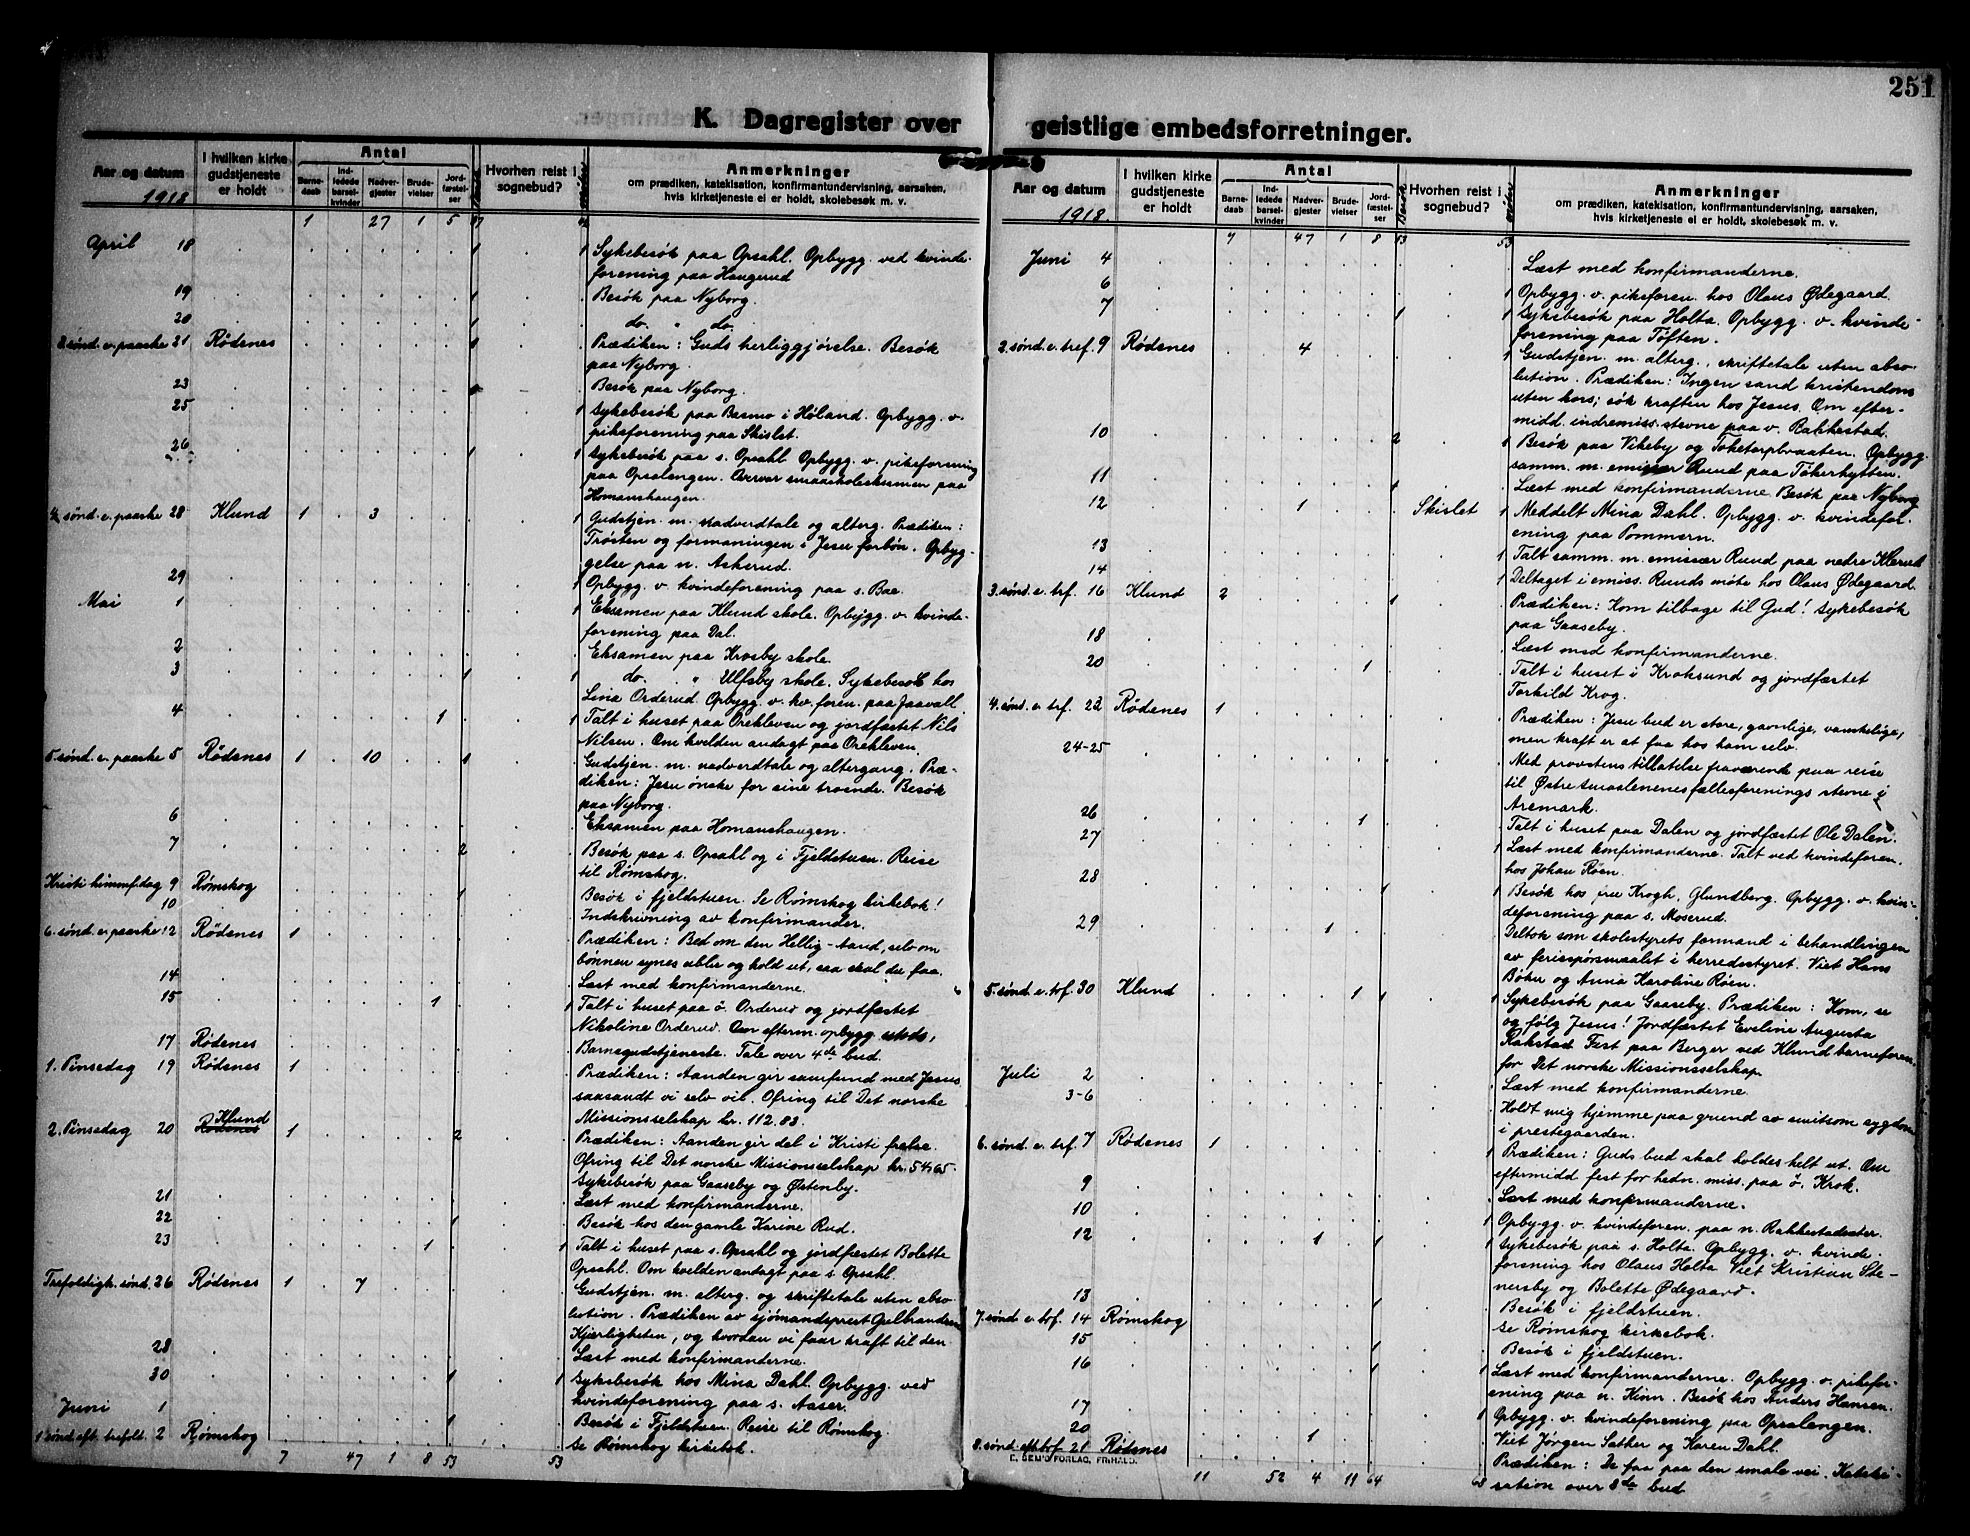 251
K. Dagregister over geistlige embedsforretninger.
Aar og datum
1918
I hvilken kirke gudstjeneste er holdt
Antal
Barnedaab
Indledede barselkvinder
Nadvergjester
Brudevielser
Jordfæstelser
Hvorhen reist i sognebud?
Anmerkninger
om prædiken, katekisation, konfirmantundervisning, aarsaken,
hvis kirketjeneste ei er holdt, skolebesøk m. v.
1 27 1 5
April 18 1 1 Sykebesøk paa Opsahl. Opbygg. ved kvinde-
forening paa Haugerud
19 1 Besøk paa Nyborg.
20 1 do. " do.
3 sønd. e. paaske 21 Rødenes 1 Prædiken: Guds herliggjørelse. Besøk
paa Nyborg.
23 Besøk paa Nyborg.
25 1 Sykebesøk paa Basmo i Høland. Opbygg. v.
pikeforening paa Skislet.
26 1 1 Sykebesøk paa s. Opsahl Opbygg. v. pikeforening
paa Opsalengen. Overvar smaaskoleeksamen paa
Homanshaugen.
4 sønd. e. paaske 28 Klund 1 3 1 Gudstjen. m. nadverdtale og alterg. Prædiken:
Trøsten og formaningen i Jesu forbøn. Opbyg-
gelse paa n. Askerud.
29 1 Opbygg. v. kvindeforening paa s. Bøe.
Mai 1 1 Eksamen paa Klund skole. Opbygg. v. kvinde-
forening paa Dal.
2 Eksamen paa Krosby skole.
3 1 1 do. " Ulfsby skole. Sykebesøk hos
Lina Orderud. Opbygg. v. kv. foren. paa Jaavall
4 1 1 Talt i huset paa Orekleven og jordfæstet Nils
Nilsen. Om kvelden andagt paa Orekleven.
5. sønd. e. paaske 5 Rødenes 1 10 1 Gudstjen. m. nadverdtale og altergang. Præ-
diken: Jesu ønske for sine troende. Besøk
paa Nyborg.
6 Eksamen paa Homanshaugen.
7 2 Besøk paa s. Opsahl og i Fjeldstuen. Reise
til Rømskog.
Kristi himmf.dag 9 Rømskog
10 1 Besøk i fjeldstuen. Se Rømskog kirkebok!
Indskrivning av konfirmander.
6. sønd. e. paaske 12 Rødenes 1 Prædiken: Bed om den Hellig-Aand, selv om
bønnen synes ublu og hold ut, saa skal du faa.
14 Læst med konfirmanderne.
15 1 1 Talt i huset paa ö. Orderud og jordfæstet
Nikoline Orderud. Om efterm. opbygg. steds.
17 Rødenes Barnegudstjeneste. Tale over 4de bud.
1. Pinsedag 19 Rødenes 1 Prædiken: Aanden gir samfund med Jesus
saasandt vi selv vil. Ofring til Det norske
Missionsselskap kr. 112.83.
Klund
2. Pinsedag 20 Rødenes 1 2 Prædiken: Aanden gir del i Kristi frelse.
Ofring til Det norske Missionsselskap kr. 54,65.
Sykebesøk paa Gaaseby og Østenby.
21 Læst med konfirmanderne.
22 1 Besøk hos den gamle Karine Rud.
23 1 1 Talt i huset paa s. Opsahl og jordfæstet Bolette
Opsahl. Om kvelden andagt paa s. Opsahl.
Trefoldigh. sønd. 26 Rødenes 1 7 Gudstjen. m. alterg. og skriftetale uten abso-
lution. Prædiken av sjömandsprest Gulbrandsen
Kjærligheten, og hvordan vi faar kraft til den
28 Læst med konfirmanderne.
30 1 1 Sykebesøk hos Mina Dahl. Opbygg. ved
kvindeforening paa s. Aaser.
Juni 1 1 Besøk i Fjeldstuen. Reise til Rømskog.
1 sönd. eft. trefold. 2 Rømskog Se Rømskog kirkebok.
7 47 1 8 53 53
Aar og datum
1918.
I hvilken kirke gudstjeneste er holdt
Antal
Barnedaab
Indledede barselkvinder
Nadvergjester
Brudevielser
Jordfæstelser
Besøk
Hvorhen reist i sognebud?
Anmerkninger
om prædiken, katekisation, konfirmantundervisning, aarsaken,
hvis kirketjeneste ei er holdt, skolebesøk m. v.
7 47 1 8 53 53
Juni 4 Læst med konfirmanderne.
6 1 Opbygg. v. pikeforen. hos Olaus Ødegaard.
7 1 1 Sykebesøk paa Holta. Opbygg. v. kvinde-
forening paa Töften.
2. sønd. e. tref. 9 Rødenes 4 1 Gudstjen. m. alterg., skriftetale uten abso-
lution. Prædiken: Ingen sand kristendom
uten kors; søk kraften hos Jesus. Om efter-
midd. indremiss. stevne paa v. Rakkestad.
10 2 1 Besøk paa Vikeby og Toketorpbraaten. Opbygg.
samm. m. emissær Ruud paa Tökerhytten.
11 1 Læst med konfirmanderne. Besøk paa Nyborg
12 1 Skislet 1 Meddelt Mina Dahl. Opbygg. v. kvindefor-
ening paa Pommern.
13 1 Talt samm. m. emissær Ruud paa nedre Klerud
14 1 Deltaget i emiss. Ruuds möte hos Olaus Ødegaard.
3. sönd. e. trf. 16 Klund 2 1 Prædiken: Kom tilbage til Gud! Sykebesøk
paa Gaaseby.
18 Læst med konfirmanderne.
20 1 Talt i huset i Kroksund og jordfæstet
Torkild Krog.
4. sönd. e. trf. 23 Rødenes 1 Prædiken: Jesu bud er store, gavnlige, vanskelige,
men kraft er at faa hos ham selv.
24-25 Med provstens tillatelse fraværende paa reise
til Østre Smaalenenes fællesforenings stevne i
Aremark.
26 1 Talt i huset paa Dalen og jordfæstet Ole Dalen.
27 1 Læst med konfirmanderne. Talt ved kvindeforen.
hos Johan Röen.
28 1 1 Besøk hos fru Krogh, Glundberg. Opbygg. v. kvin-
deforening paa s. Moserud.
29 1 Deltok som skolestyrets formand i behandlingen
av feriespörsmaalet i herredsstyret. Viet Hans
Böhn og Anna Karoline Röen.
5. sönd. e. tref. 30 Klund 1 1 1 Sykebesøk paa Gaaseby. Prædiken: Kom, se
og følg Jesus! Jordfæstet Eveline Augusta
Rakstad Fest paa Berger ved Klund barneforen.
for Det norske Missionsselskap.
Juli 2 Læst med konfirmanderne.
3-6 Holdt mig hjemme paa grund av smitsom sygdom
i prestegaarden.
6. sönd. e. trf. 7 Rødenes 1 1 Prædiken: Guds bud skal holdes helt ut. Om
eftermidd fest for hedn. miss. paa ö. Krok.
9 Læst med konfirmanderne.
10 1 Opbygg. v. kvindeforen. paa n. Rakkestadsæter.
12 1 1 1 Sykebesøk paa s. Holta. Opbygg. v. kvinde-
forening hos Olaus Holta Viet Kristian Ste-
nersby og Bolette Ødegaard.
13 1 Besøk i fjeldstuen.
7. sönd e. tref. 14 Rømskog Se Rømskog kirkebok.
15 1 Besøk i fjeldstuen.
16 1 1 Læst med konfirmanderne. Opbygg. v. pikefor-
ening paa n. Kinn. Besøk hos Anders Hansen.
17 1 Opbygg. v. kvindeforening paa Opsalengen.
20 1 Viet Jørgen Sæther og Karen Dahl.
8. sönd. eft. tref. 21 Rødenes Prædiken: De faa paa den smale vei. Kateki-
sation over 8de bud
11 52 4 11 64 68
E. SEM'S FORLAG, FR.HALD.